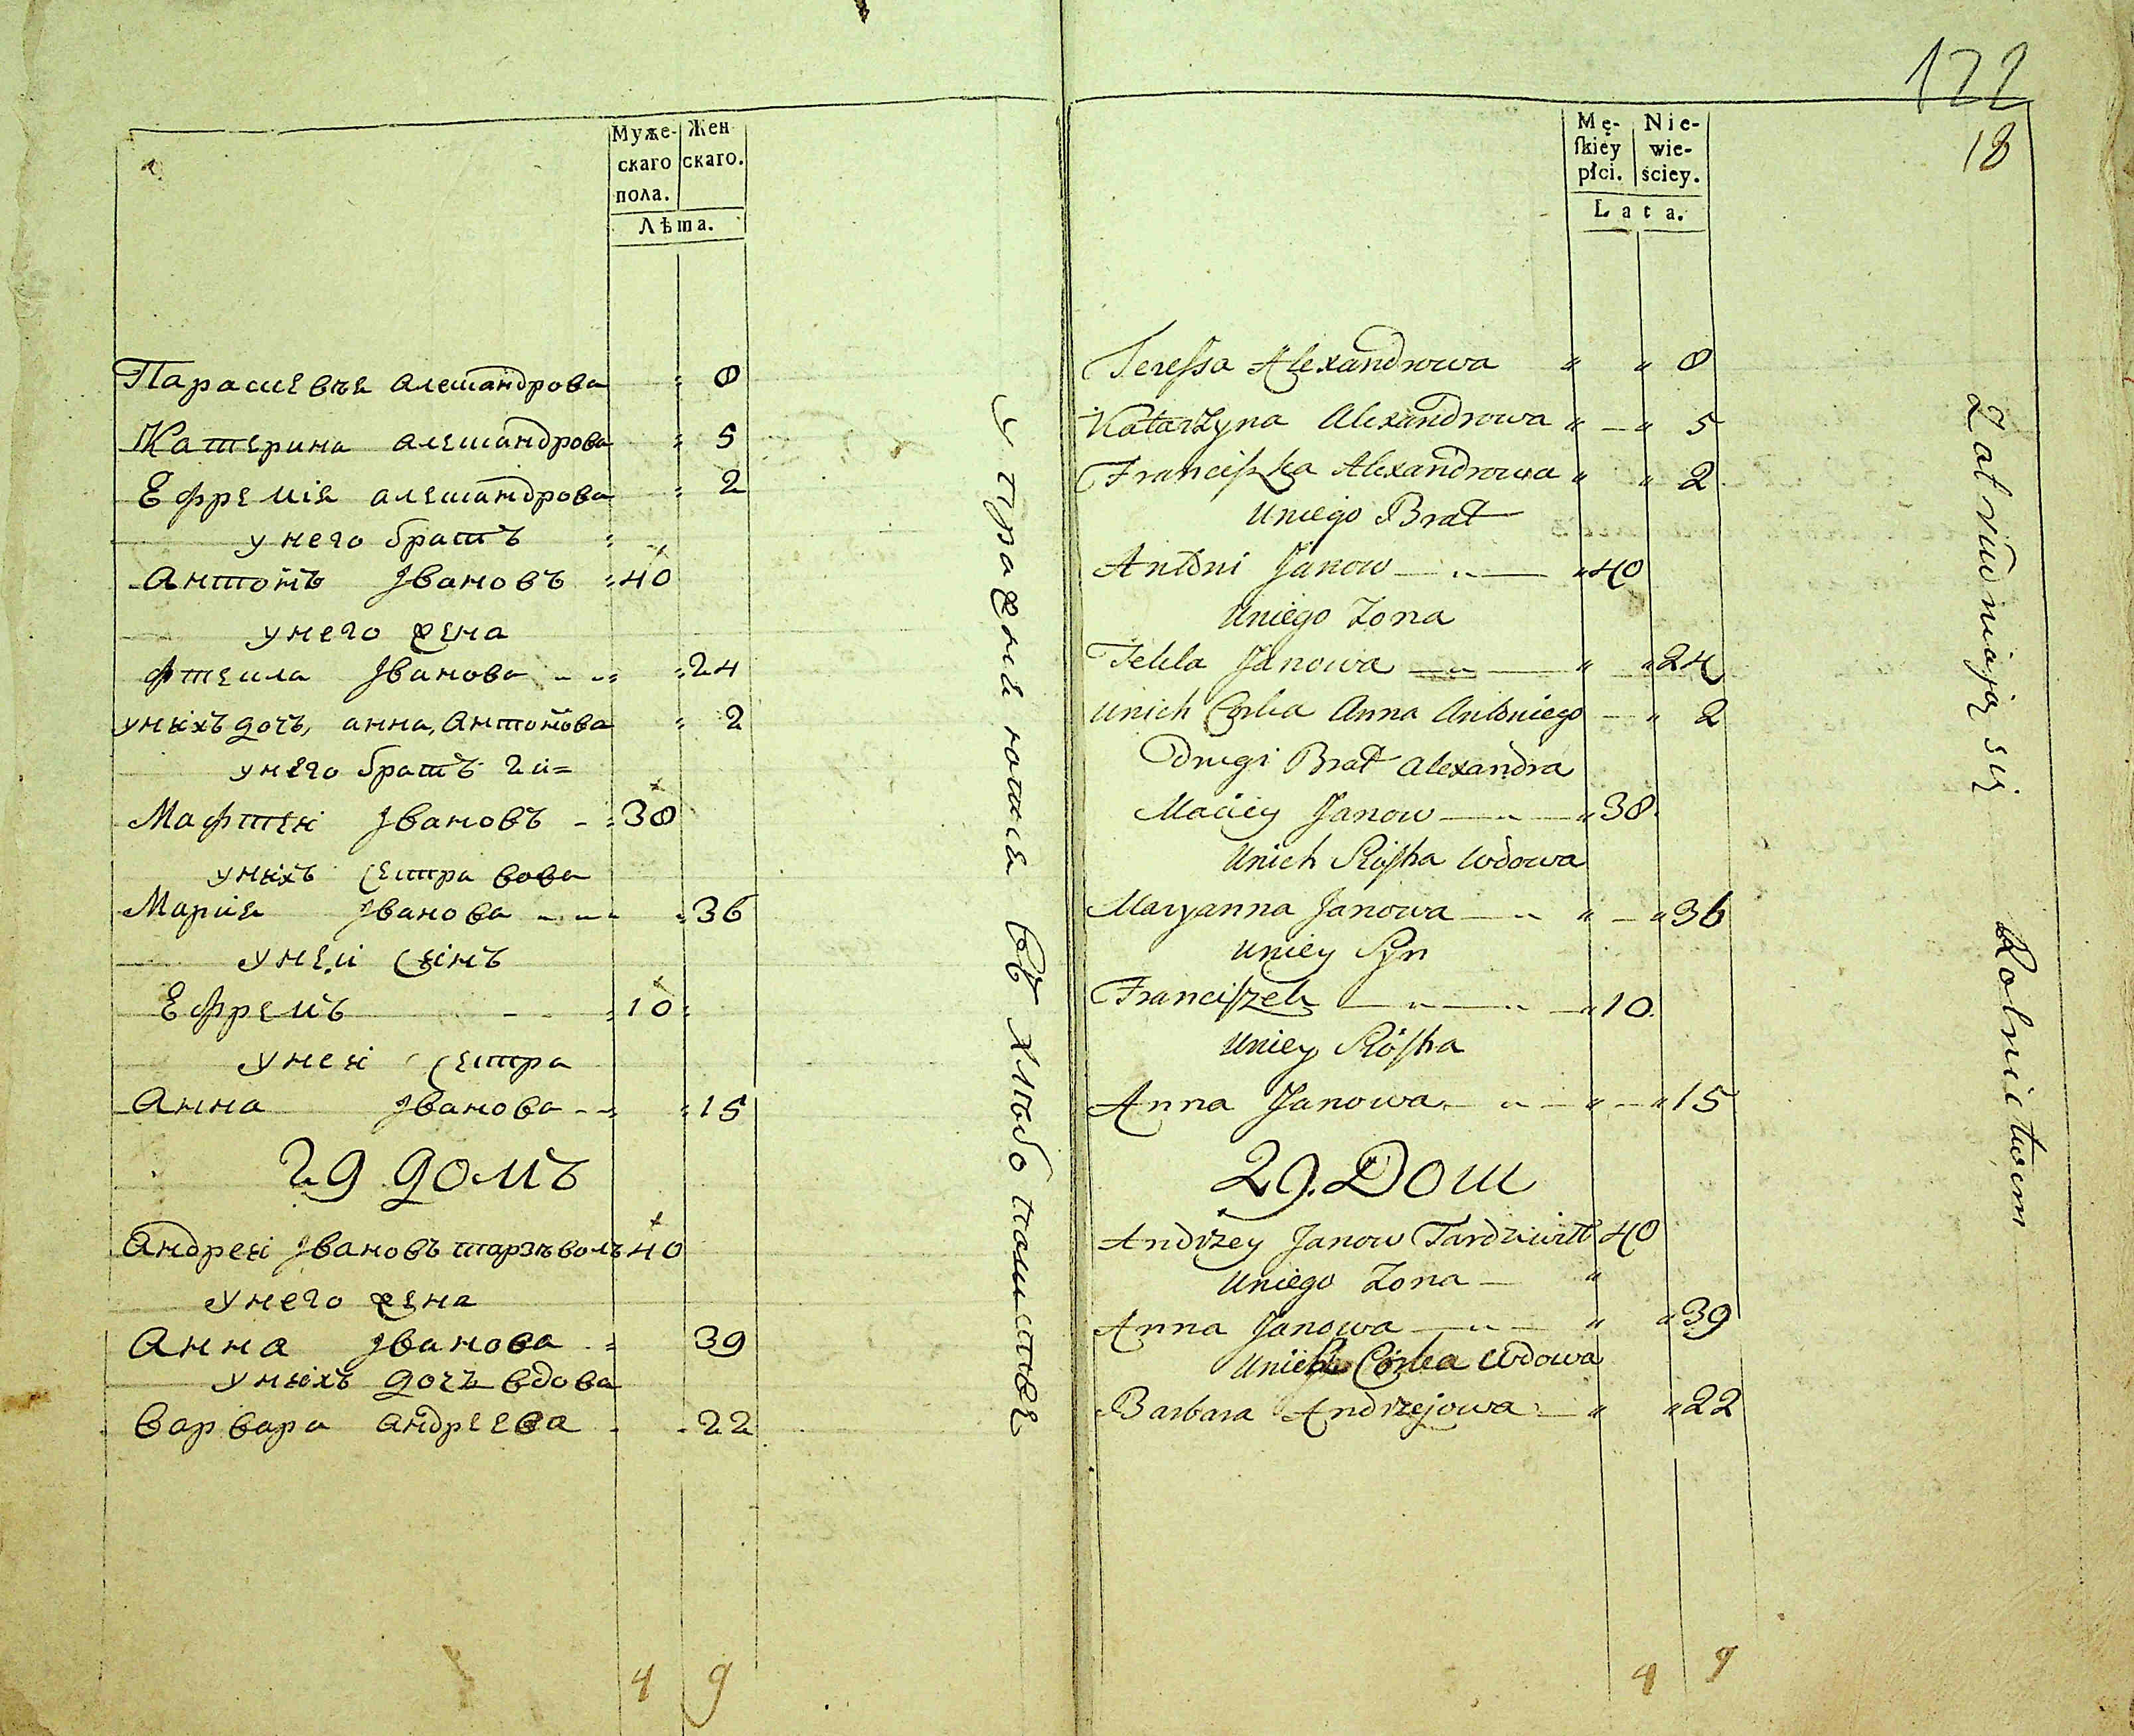 Муже- Жен
скаго скаго.
пола.
Лѣта.
Парасиевъя алеѯандрова 8
Катерина алеѯандрова 5
Ефремія алеѯандрова 2
у него братъ
Антонъ Івановъ 40
у него жена
Фтекла Іванова 24
у ныхъ дочъ, анна, Антонова 2
у него братъ 2й
Мафтей Івановъ 38
у ныхъ сестра вова
Мария Іванова 36
у ней сынъ
Ефремъ 10
у ней сестра
Анна Іванова 15
29 домъ
Андрей Івановъ 40
у него жена
Анна Іванова 39
у ныхъ дочъ вдова
Варвара андреева 22
4 9
Упражняются въ хлѣбопашествѣ
122
18
Mę- Nie-
skiey wie-
płci. ściey.
Lata.
Teressa Alexandrowa 8
Katarzyna Alexandrowa 5
Franciszka Alexandrowa 2
Uniego Brat
Antoni Janow 40
Uniego Zona
Tekla Janowa 24
Unich Corka Anna Antoniego 2
Drugi Brat Alexandra
Maciey Janow 38.
Unich Siostra Wdowa
Maryanna Janowa 36
Uniey Syn
Franciszek 10.
Uniey Siostra
Anna Janowa 15
29. Dom
Andrzey Janow 40
Uniego Zona
Anna Janowa 39
Unich Córka Wdowa
Barbara Andrzejowa 22
4 9
Zatrudniają się Rolnictwem